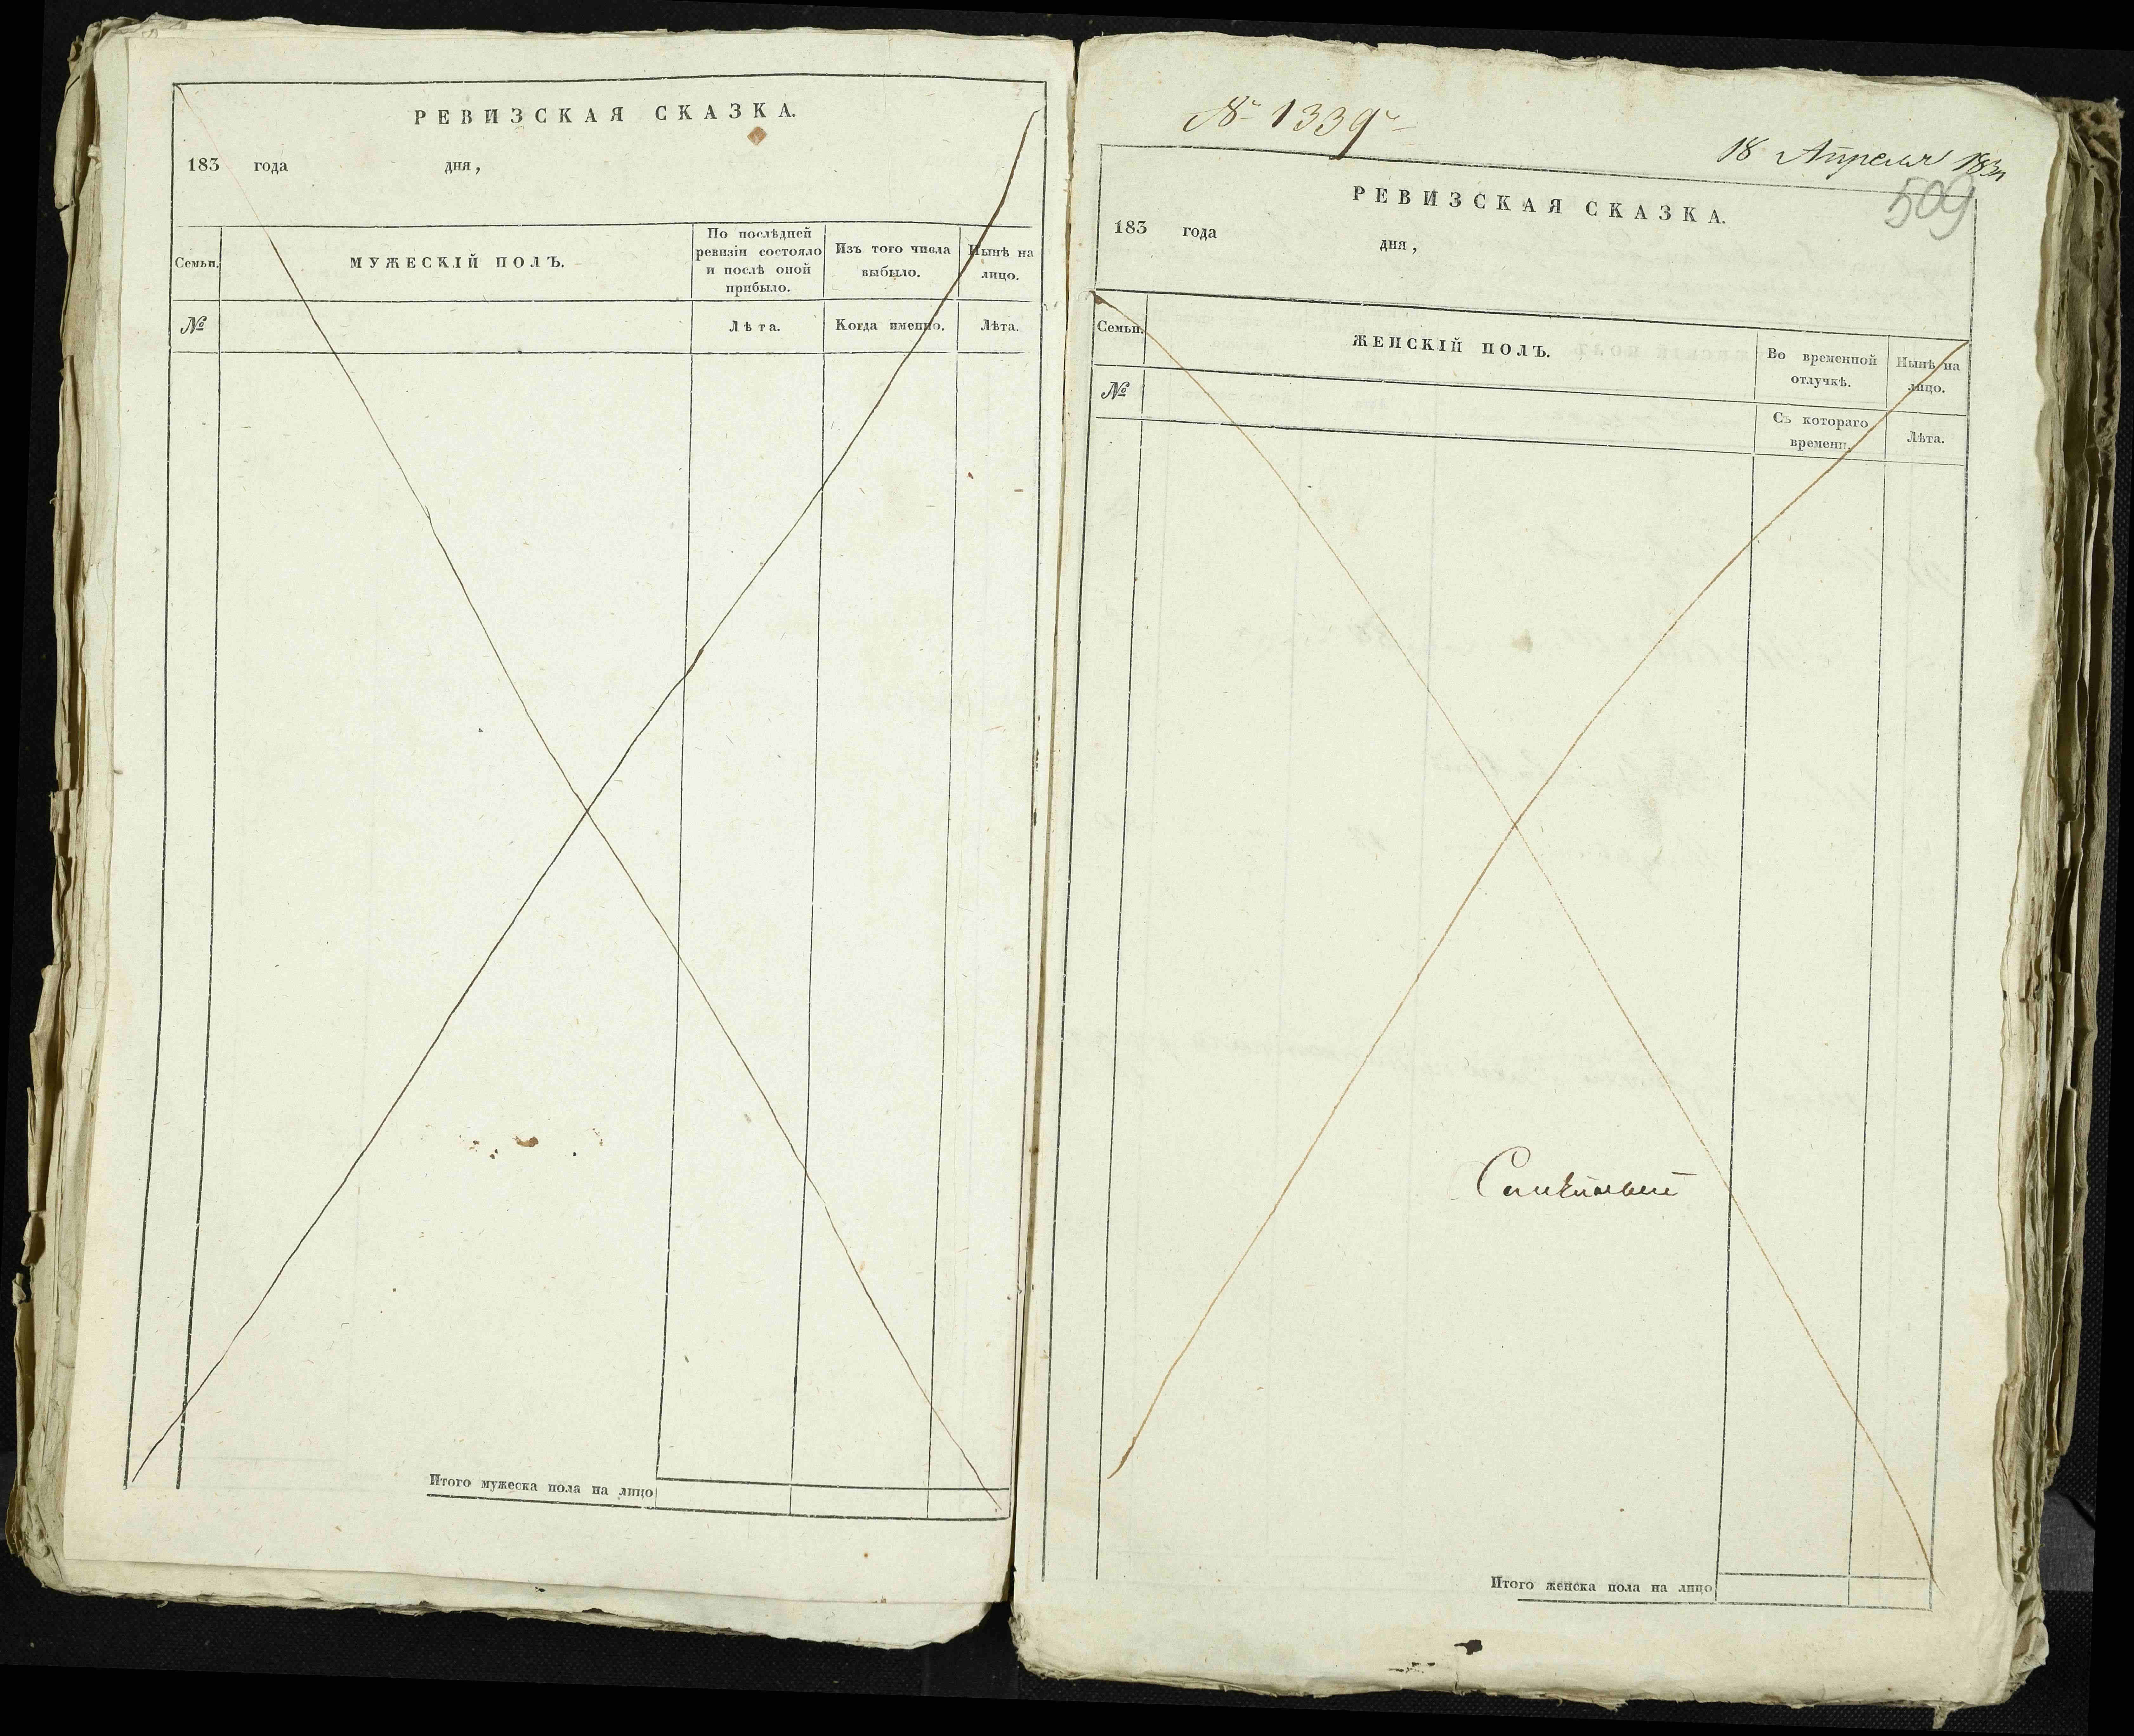 РЕВИЗСКАЯ СКАЗКА.
183 года дня,
Семьи.
МУЖЕСКІЙ ПОЛЪ.
По послѣдней
ревизіи состояло
и послѣ оной
прибыло.
Изъ того числа
выбыло.
Нынѣ на
лицо.
№
Лѣта.
Когда именно.
Лѣта.
Итого мужеска пола на лицо
№ 1339
18 Апреля
509
РЕВИЗСКАЯ СКАЗКА.
183 года дня,
Семьи.
ЖЕНСКІЙ ПОЛЪ.
Во временной
отлучкѣ.
Нынѣ на
лицо.
№
Съ котораго
времени.
Лѣта.
Итого женска пола на лицо